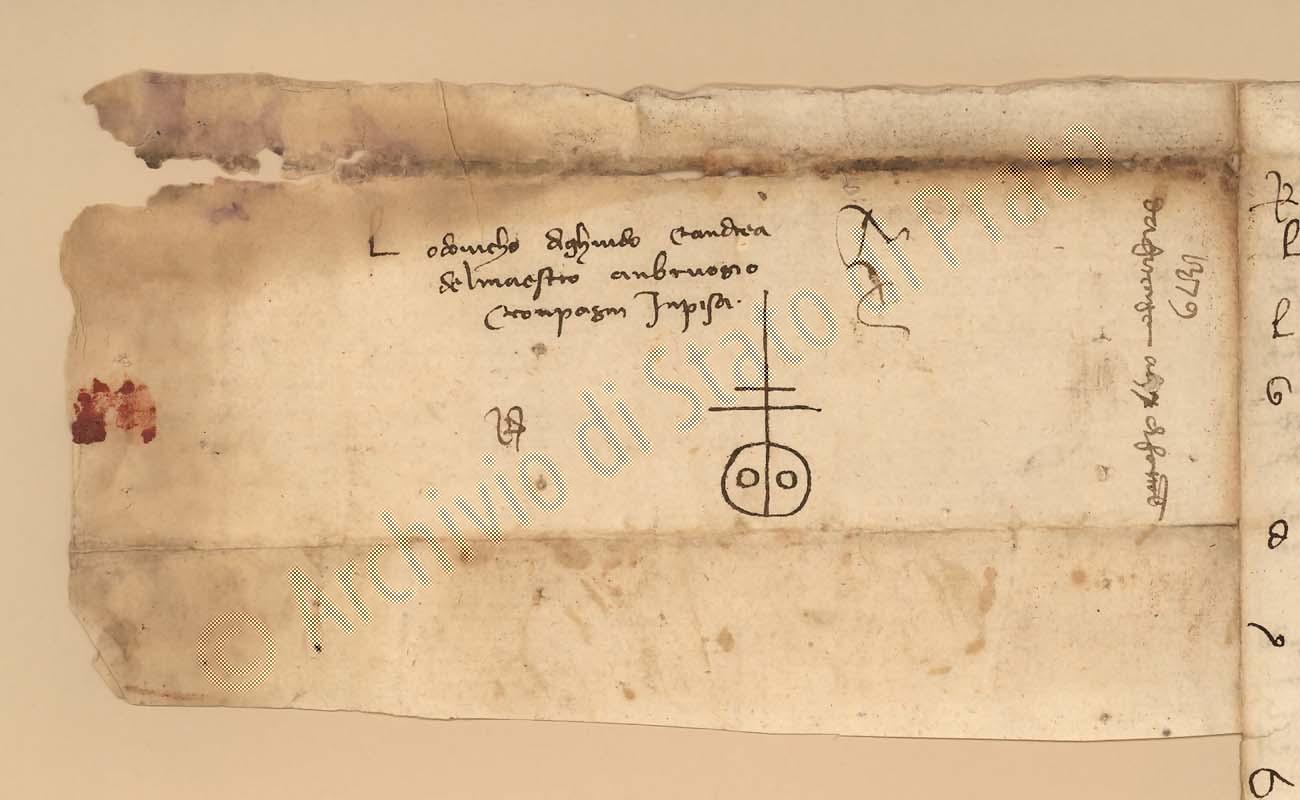 Lodovicho dghuido e andrea
del maestro anbruogio
e conpagni In pisa.
1379
da firenze
© Archivio di Stato di Prato